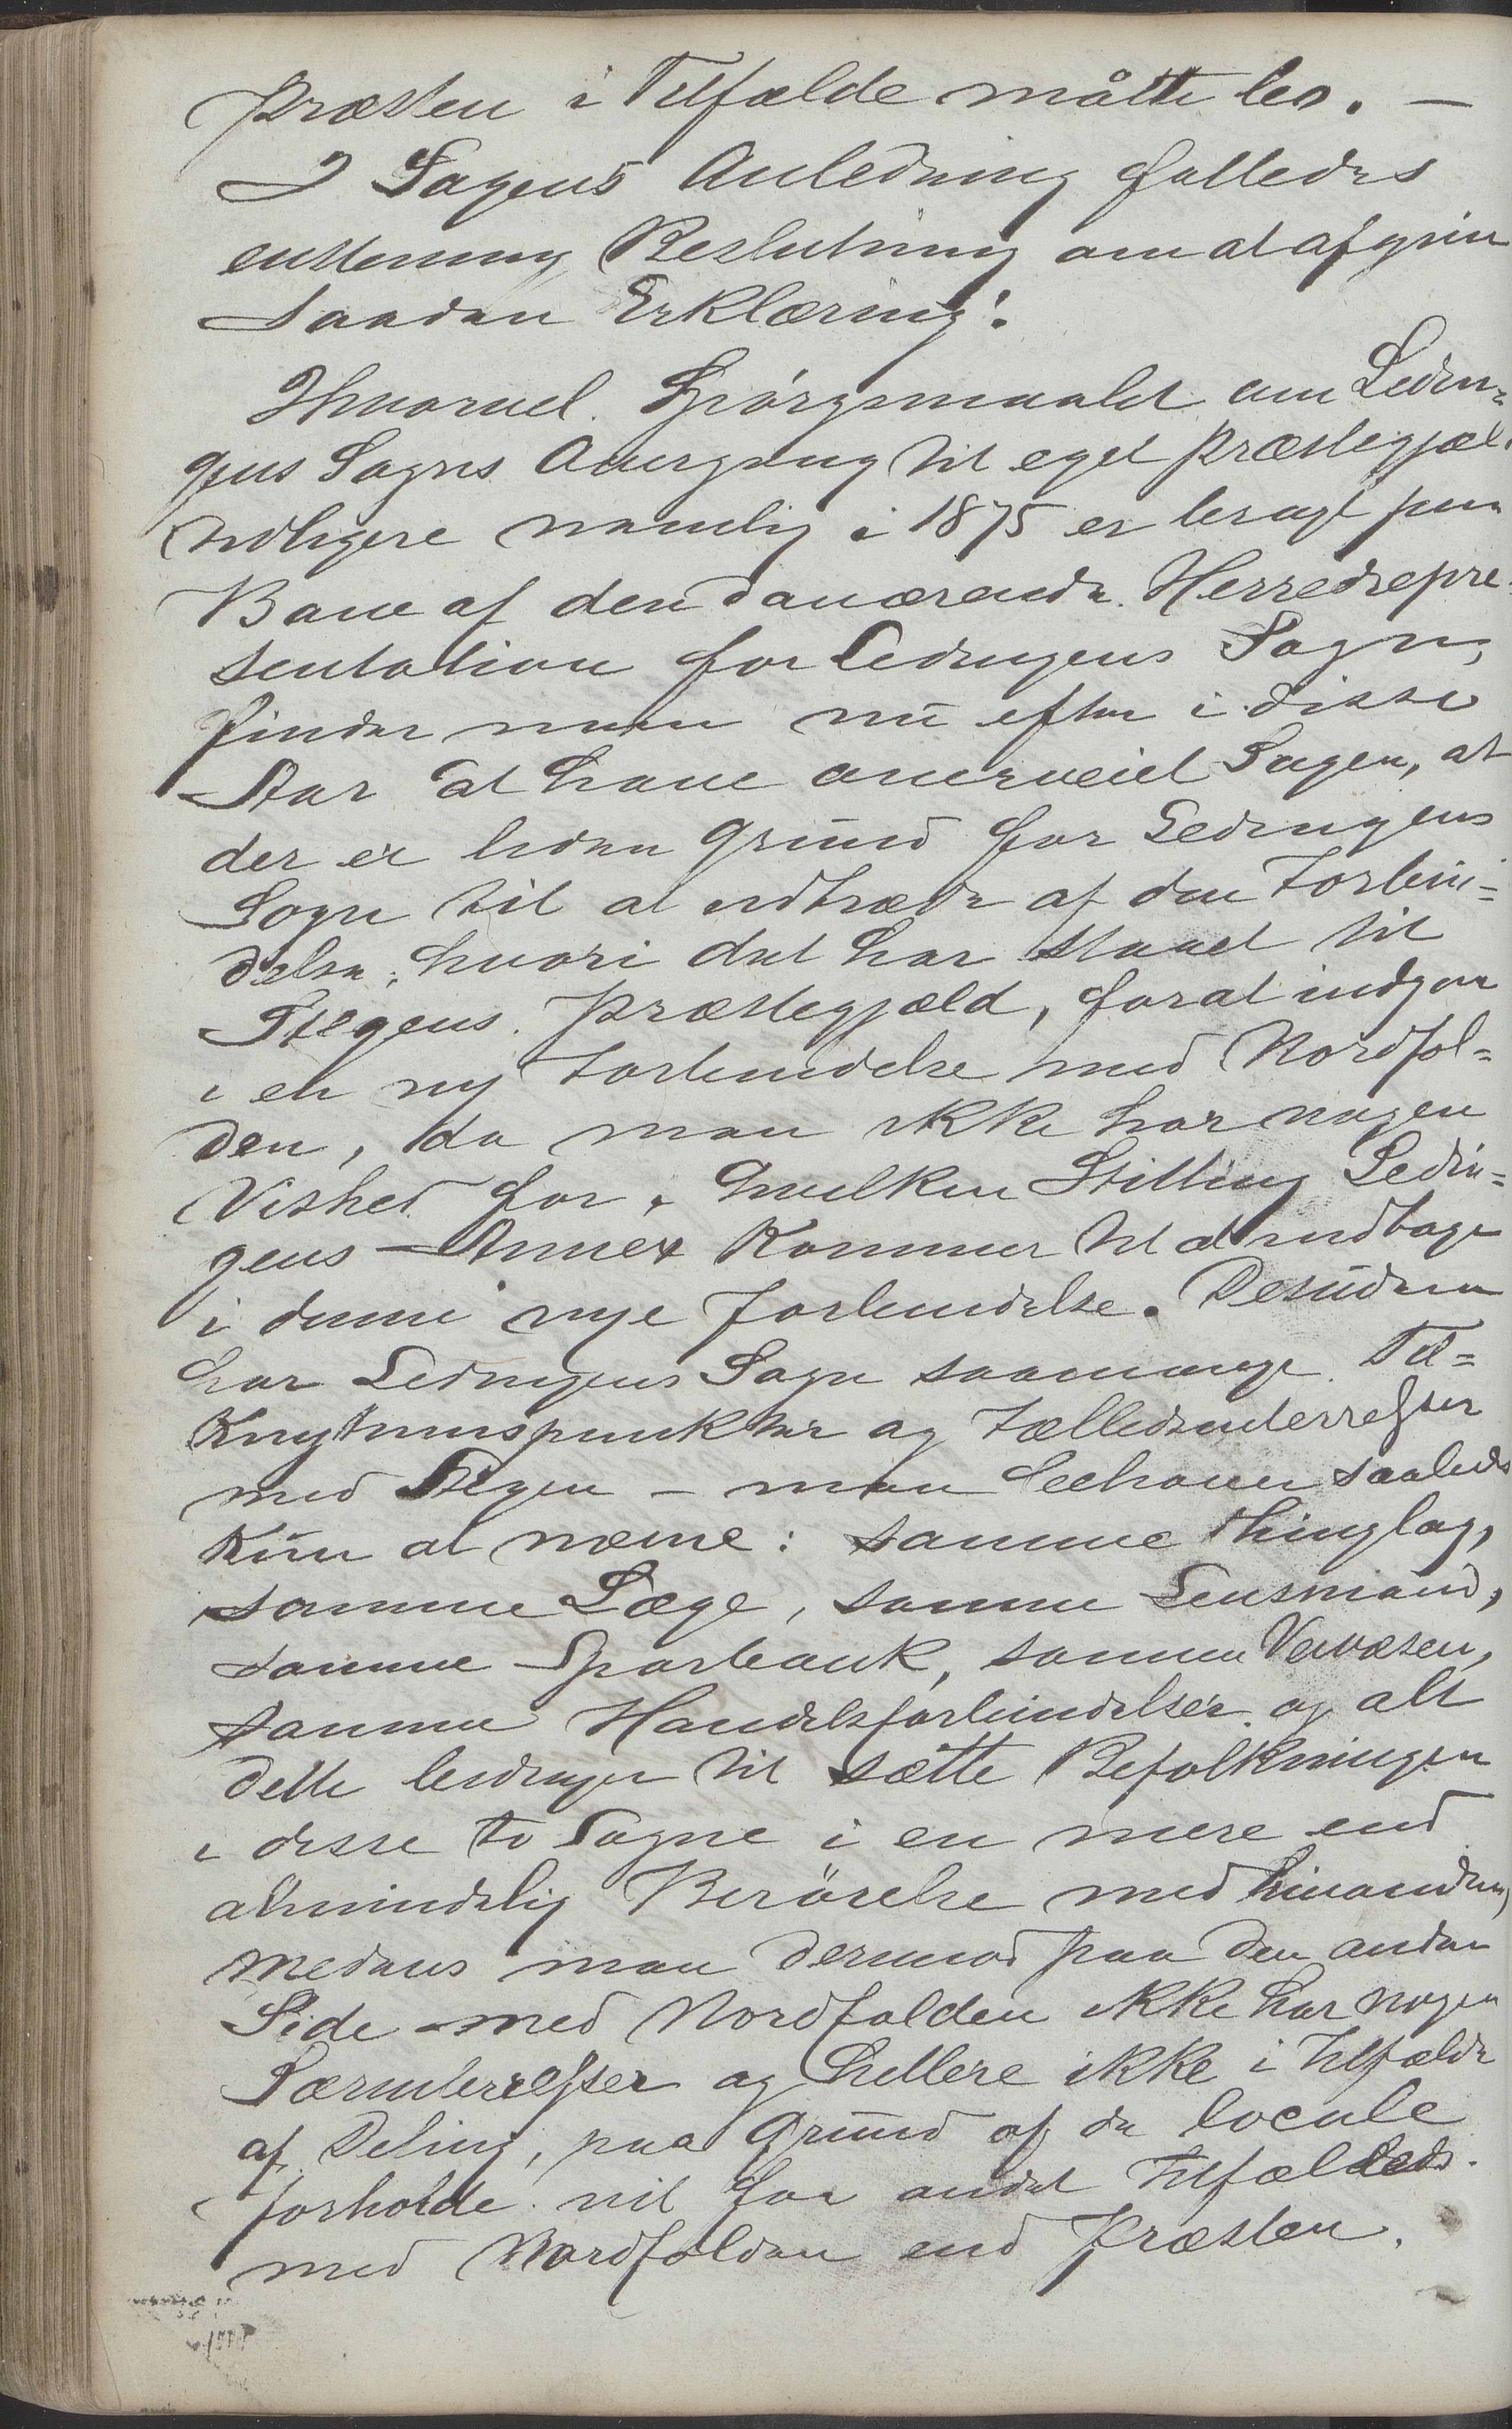 Præsten i Tilfælde måtte bo. —
I Sagens Anledning falledes
enstemmig Beslutning om at afgive
saadan Erklæring:
Ihvorvel Spörgsmaalet om Ledin-
gens Sogns Overgang til eget Præstegjæld
tidligere nemlig i 1875 er bragt paa
Bane af den daværende Herredsrepre-
sentation for Ledingens Sogn,
finder man nu efter i disse
Aar at have overveiet Sagen, at
der er liden Grund for Ledingens
Sogn til at udtræde af den Forbin-
delse, hvori det har staaet til
Stegens Præstegjæld, forat indgaa
i en ny Forbindelse med Nordfol-
den, da man ikke har nogen
Vished for, hvilken Stilling Ledin-
gens Annex kommer til at indtage
i denne nye Forbindelse. Desuden
har Ledingens Sogn saamange Til-
knytningspunkter og Fællesinteresser
med Stegen – man behøver saaledes
kun at nævne: samme Thinglag,
samme Læge, samme Lensmand,
samme Sparbank, samme Veivæsen,
samme Handelsforbindelser og alt
dette bidrager til sætte Befolkningen
i disse to Sogne i en mere end
almindelig Berörelse med hinanden,
medens man derimod paa den anden
Side med Nordfolden ikke har nogen
Særinteresser og hellere ikke i Tilfælde
af Deling, paa Grund af de locale
Forholde vil faa andet Tilfælleds
med Nordfolden end Præsten.